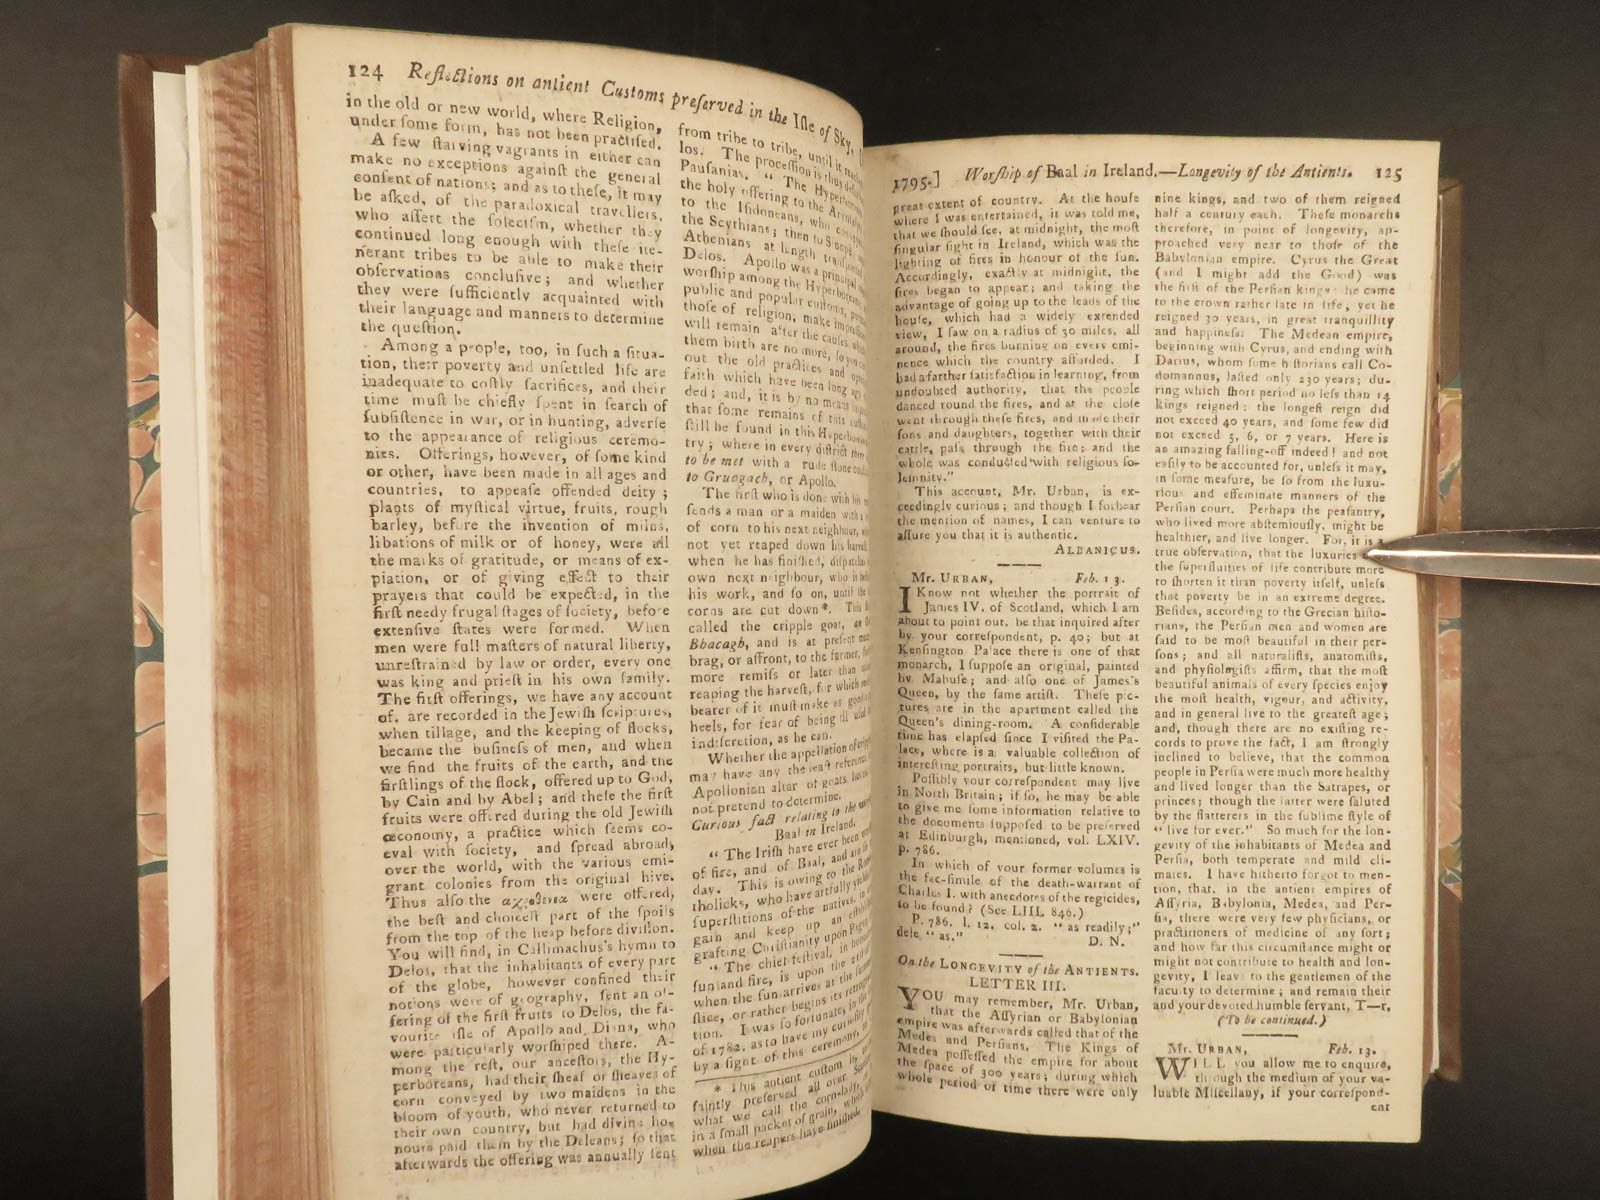 124 Reflections on antient Customs preſerved in the Iſle of Sky.
in the old or new world, where Religion,
under ſome form, has not been practiſed.
A few ſtarving vagrants in either can
make no exceptions againſt the general
conſent of nations; and as to theſe, it may
be aſked, of the paradoxical travellers,
who aſſert the ſoleciſm, whether they
continued long enough with theſe ite-
nerant tribes to be able to make their
obſervations concluſive; and whether
they were ſufficiently acquainted with
their language and manners to determine
the queſtion.
Among a people, too, in ſuch a ſitua-
tion, their poverty and unſettled life are
inadequate to coſtly ſacrifices, and their
time muſt be chiefly ſpent in ſearch of
ſubſiſtence in war, or in hunting, adverſe
to the appearance of religious ceremo-
nies. Offerings, however, of ſome kind
or other, have been made in all ages and
countries, to appeaſe offended deity;
plants of myſtical virtue, fruits, rough
barley, before the invention of mills,
libations of milk or of honey, were all
the marks of gratitude, or means of ex-
piation, or of giving effect to their
prayers that could be expected, in the
firſt needy frugal ſtages of ſociety, before
extenſive ſtates were formed. When
men were full maſters of natural liberty,
unreſtrained by law or order, every one
was king and prieſt in his own family.
The firſt offerings, we have any account
of, are recorded in the Jewiſh ſcriptures,
when tillage, and the keeping of flocks,
became the buſineſs of men, and when
we find the fruits of the earth, and the
firſtlings of the flock, offered up to God,
by Cain and by Abel; and theſe the firſt
fruits were offered during the old Jewiſh
œconomy, a practice which ſeems co-
eval with ſociety, and ſpread abroad,
over the world, with the various emi-
grant colonies from the original hive.
Thus alſo the ακροθινια were offered,
the beſt and choiceſt part of the ſpoils
from the top of the heap before diviſion.
You will find, in Callimachus's hymn to
Delos, that the inhabitants of every part
of the globe, however confined their
notions were of geography, ſent an of-
fering of the firſt fruits to Delos, the fa-
vourite iſle of Apollo and Diana, who
were particularly worſhiped there. A-
mong the reſt, our anceſtors, the Hy-
perboreans, had their ſheaf or ſheaves of
corn conveyed by two maidens in the
bloom of youth, who never returned to
their own country, but had divine ho-
nours paid them by the Deleans; ſo that
afterwards the offering was annually ſent
from tribe to tribe, until it
los. The proceſſion is thus
Pauſanias. " The
the holy offering to the
to the Iſſidoneans, who
the Scythians; then to Sinope;
Athenians at length
Delos. Apollo was a principal
worſhip among the
public and popular cuſtoms,
thoſe of religion, make
will remain after the cauſes which
them birth are no more, ſo you
out the old practices and
faith which have been long
ded; and, it is by no means
that ſome remains of this
ſtill be found in this
try; where in every diſtrict there
to be met with a rude ſtone
to Gruagach, or Apollo.
The firſt who is done with his
ſends a man or a maiden with a
of corn to his next neighbour,
not yet reaped down his harveſt,
when he has finiſhed, diſpatches
own next neighbour, who
his work, and ſo on, until the
corns are cut down*. This
called the cripple goat, an
Bhacagh, and is at preſent
brag, or affront, to the farmer,
more remiſs or later than
reaping the harveſt, for which
bearer of it muſt make as good
heels, for fear of being ill uſed
indiſcretion, as he can.
Whether the appellation of
may have any the leaſt reference
Apollonian altar of goats
not pretend to determine.
Curious fact relating to the
Baal in Ireland.
" The Iriſh have ever been
of fire, and of Baal, and are ſo
day. This is owing to the
tholicks, who have artfully
ſuperſtitions of the natives,
gain and keep up an
grafting Chriſtianity upon
" The chief feſtival, in honour
ſun and fire, is upon the 21ſt of
when the ſun arrives at the
ſtice, or rather begins its retrograde
tion. I was ſo fortunate, in the
of 1782, as to have my curioſity
by a ſight of this ceremony,
* This antient cuſtom is
faintly preſerved all over
what we call the corn-lady,
in a ſmall packet of grain, which
when the reapers have finiſhed.
1795.] Worſhip of Baal in Ireland.—Longevity of the Antients. 125
great extent of country. At the houſe
where I was entertained, it was told me,
that we ſhould ſee, at midnight, the moſt
ſingular ſight in Ireland, which was the
lighting of fires in honour of the ſun.
Accordingly, exactly at midnight, the
fires began to appear; and taking the
advantage of going up to the leads of the
houſe, which had a widely extended
view, I ſaw on a radius of 30 miles, all
around, the fires burning on every emi-
nence which the country afforded. I
had a farther ſatisfaction in learning, from
undoubted authority, that the people
danced round the fires, and at the cloſe
went through theſe fires, and made their
ſons and daughters, together with their
cattle, paſs through the fire; and the
whole was conducted with religious ſo-
lemnity."
This account, Mr. Urban, is ex-
ceedingly curious; and though I forbear
the mention of names, I can venture to
aſſure you that it is authentic.
ALBANICUS.
Mr. URBAN, Feb. 13.
I Know not whether the portrait of
James IV. of Scotland, which I am
about to point out, be that inquired after
by your correſpondent, p. 40; but at
Kenſington Palace there is one of that
monarch, I ſuppoſe an original, painted
by Mabuſe; and alſo one of James's
Queen, by the ſame artiſt. Theſe pic-
tures are in the apartment called the
Queen's dining-room. A conſiderable
time has elapſed ſince I viſited the Pa-
lace, where is a valuable collection of
intereſting portraits, but little known.
Poſſibly your correſpondent may live
in North Britain; if ſo, he may be able
to give me ſome information relative to
the documents ſuppoſed to be preſerved
at Edinburgh, mentioned, vol. LXIV.
p. 786.
In which of your former volumes is
the fac-ſimile of the death-warrant of
Charles I. with anecdotes of the regicides,
to be found? (See LIII. 846.)
P. 786, l. 12, col. 2. " as readily;"
dele " as." D. N.
On the LONGEVITY of the ANTIENTS.
LETTER III.
YOU may remember, Mr. Urban,
that the Aſſyrian or Babylonian
empire was afterwards called that of the
Medes and Perſians. The Kings of
Medea poſſeſſed the empire for about
the ſpace of 300 years; during which
whole period of time there were only
nine kings, and two of them reigned
half a century each. Theſe monarchs
therefore, in point of longevity, ap-
proached very near to thoſe of the
Babylonian empire. Cyrus the Great
(and I might add the Good) was
the firſt of the Perſian kings: he came
to the crown rather late in life, yet he
reigned 30 years, in great tranquillity
and happineſs. The Medean empire,
beginning with Cyrus, and ending with
Darius, whom ſome hiſtorians call Co-
domannus, laſted only 230 years; du-
ring which ſhort period no leſs than 14
kings reigned: the longeſt reign did
not exceed 40 years, and ſome few did
not exceed 5, 6, or 7 years. Here is
an amazing falling-off indeed! and not
eaſily to be accounted for, unleſs it may,
in ſome meaſure, be ſo from the luxu-
rious and effeminate manners of the
Perſian court. Perhaps the peaſantry,
who lived more abſtemiouſly, might be
healthier, and live longer. For, it is a
true obſervation, that the luxuries
the ſuperfluities of life contribute more
to ſhorten it than poverty itſelf, unleſs
that poverty be in an extreme degree.
Beſides, according to the Grecian hiſto-
rians, the Perſian men and women are
ſaid to be moſt beautiful in their per-
ſons; and all naturaliſts, anatomiſts,
and phyſiologiſts affirm, that the moſt
beautiful animals of every ſpecies enjoy
the moſt health, vigour, and activity,
and in general live to the greateſt age;
and, though there are no exiſting re-
cords to prove the fact, I am ſtrongly
inclined to believe, that the common
people in Perſia were much more healthy
and lived longer than the Satrapes, or
princes; though the latter were ſaluted
by the flatterers in the ſublime ſtyle of
" live for ever." So much for the lon-
gevity of the inhabitants of Medea and
Perſia, both temperate and mild cli-
mates. I have hitherto forgot to men-
tion, that, in the antient empires of
Aſſyria, Babylonia, Medea, and Per-
ſia, there were very few phyſicians, or
practitioners of medicine of any ſort;
and how far this circumſtance might or
might not contribute to health and lon-
gevity, I leave to the gentlemen of the
faculty to determine; and remain their
and your devoted humble ſervant, T—r.
(To be continued.)
Mr. URBAN, Feb. 13.
WILL you allow me to enquire,
through the medium of your va-
luable Miſcellany, if your correſpond-
ent